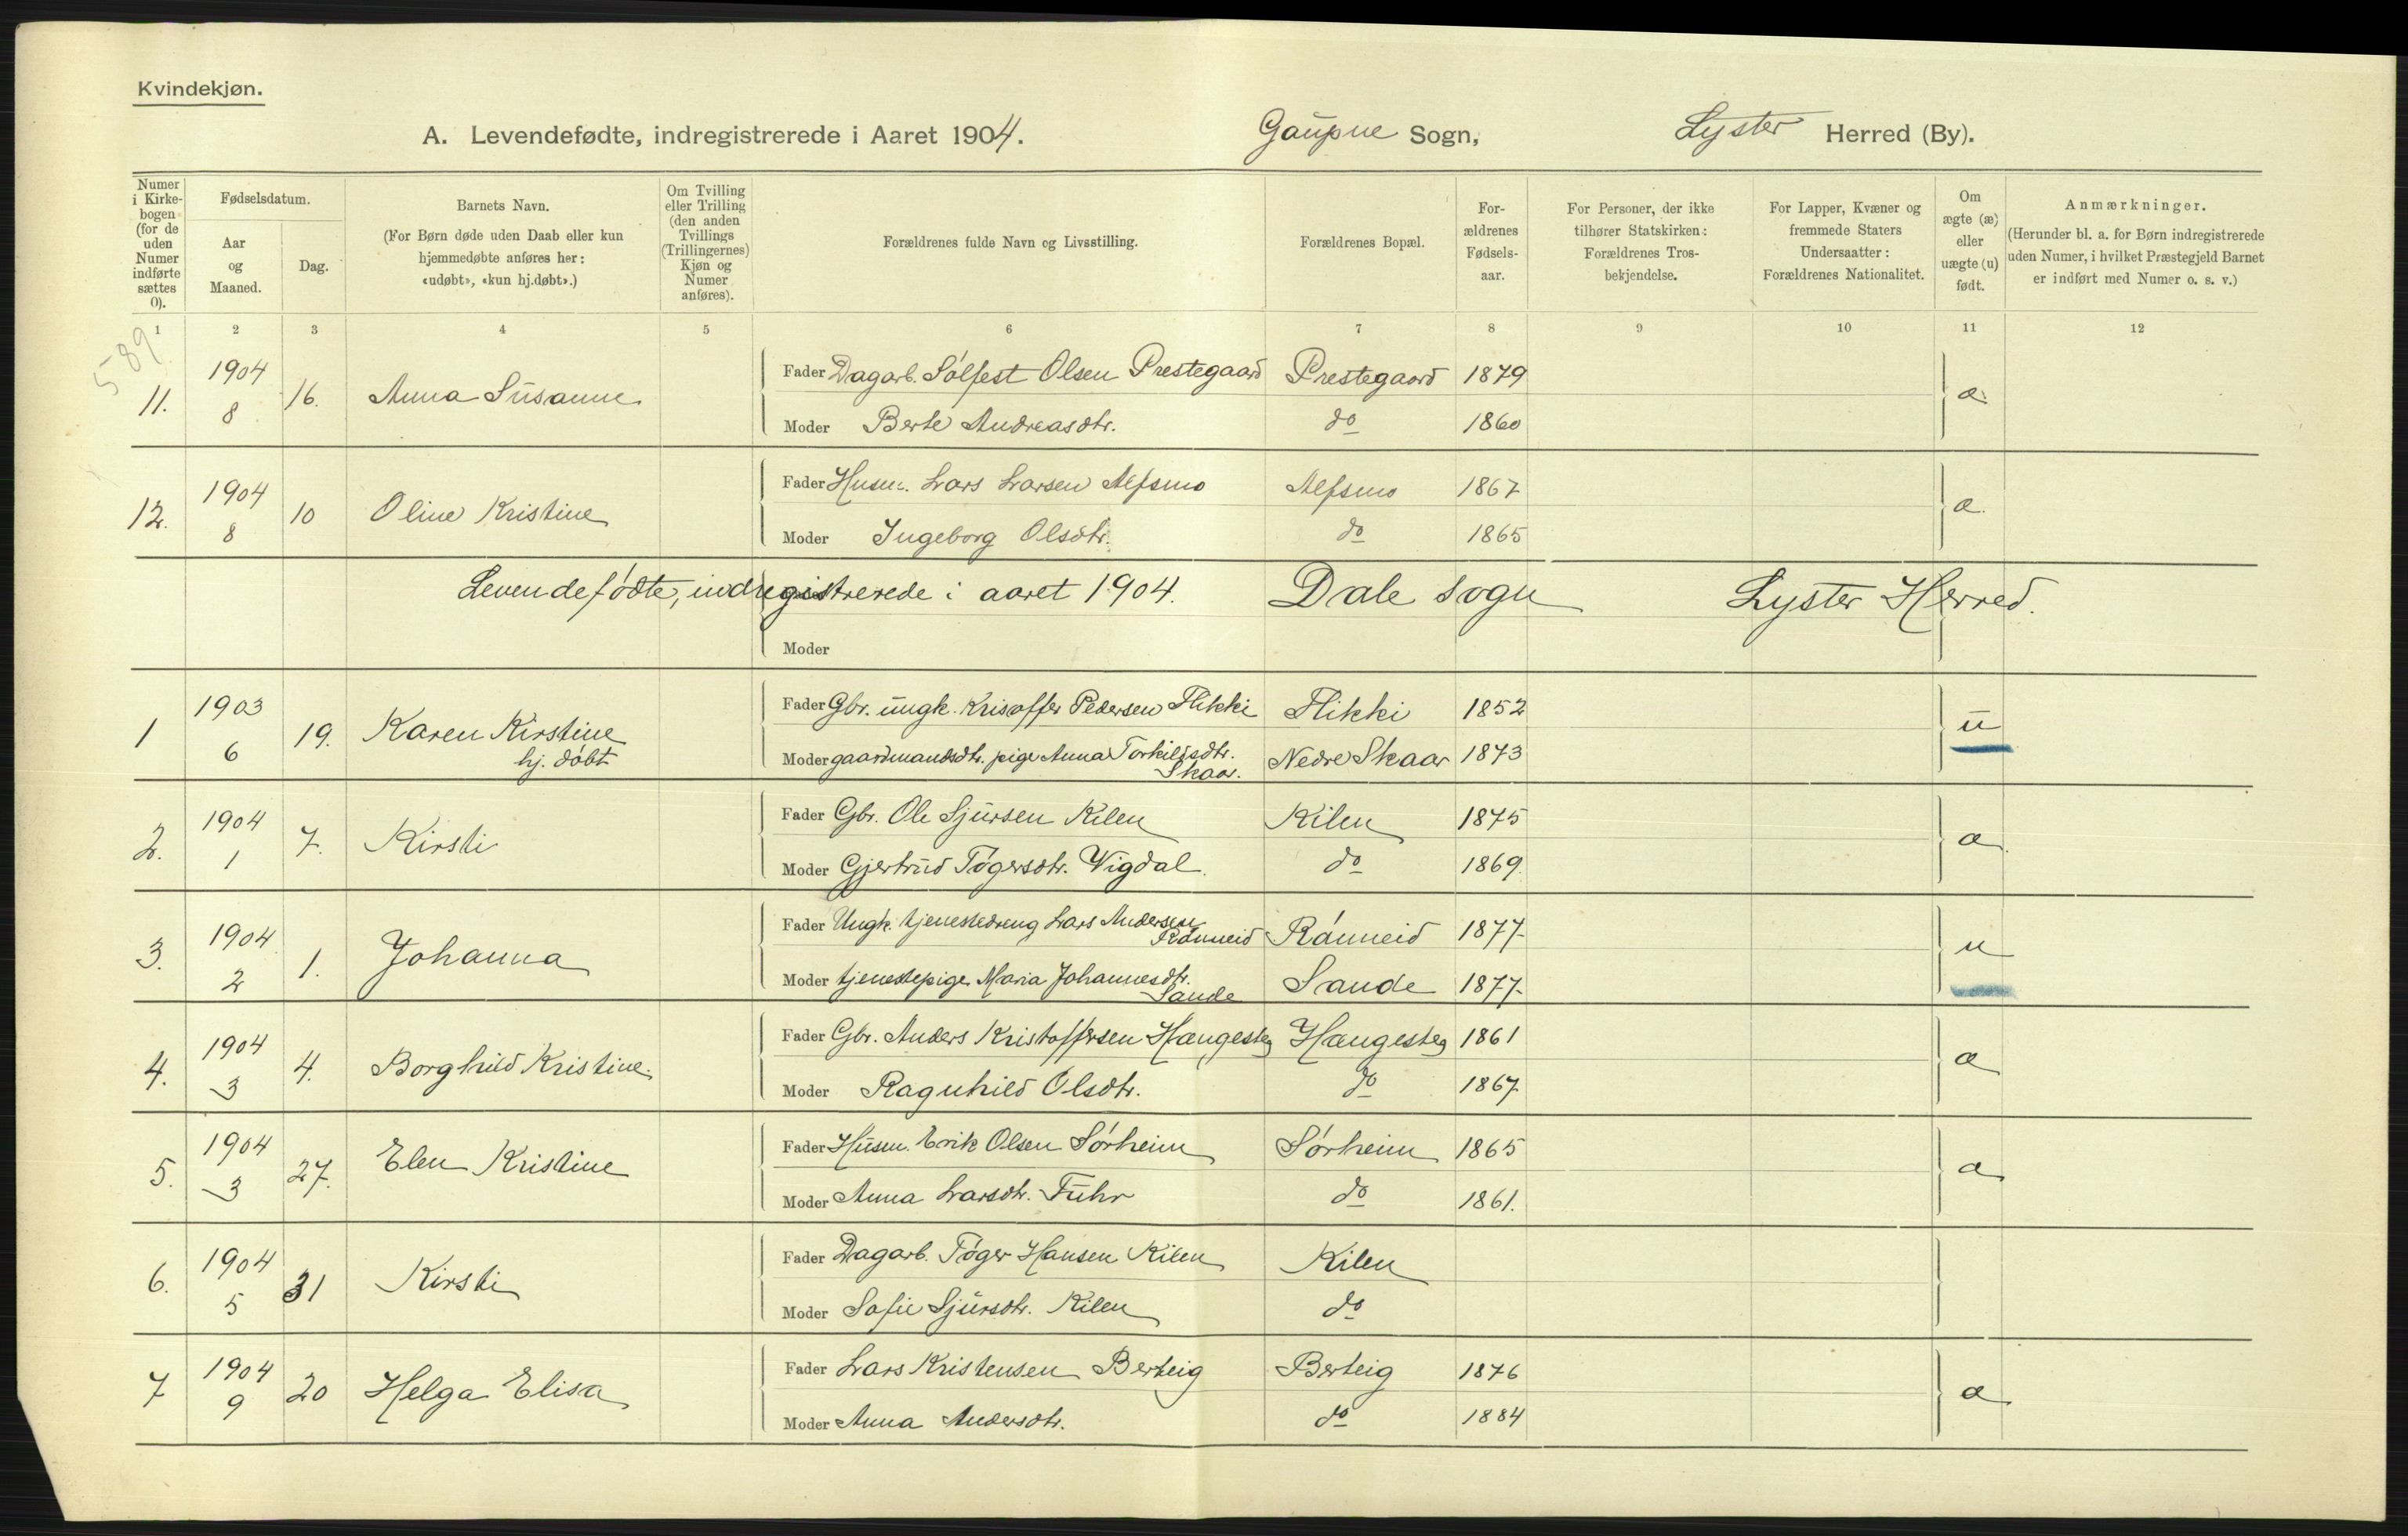 Kvindekjøn.
A. Levendefødte, indregistrerede i Aaret 1904. Gaupne Sogn, Lyster Herred (By).
Numer i Kirkebogen (for de uden Numer indførte sættes 0).
Fødselsdatum.
Aar og Maaned.
Dag.
Barnets Navn.
(For Børn døde uden Daab eller kun hjemmedøbte anføres her: «udøbt», «kun hj.døbt».)
Om Tvilling eller Trilling (den anden Tvillings (Trillingernes) Kjøn og Numer anføres).
Forældrenes fulde Navn og Livsstilling.
Forældrenes Bopæl.
Forældrenes Fødselsaar.
For Personer, der ikke tilhører Statskirken: Forældrenes Trosbekjendelse.
For Lapper, Kvæner og fremmede Staters Undersaatter: Forældrenes Nationalitet.
Om ægte (æ) eller uægte (u) født.
Anmærkninger.
(Herunder bl. a. for Børn indregistrerede uden Numer, i hvilket Præstegjeld Barnet er indført med Numer o. s. v.)
1 2 3 4 5 6 7 8 9 10 11 12
589
11. 1904 8 16. Anna Susanne Fader Dagarb. Sølfest Olsen Prestegaard Prestegaard 1879 æ
Moder Berte Andreasdtr. do 1860
12. 1904 8 10 Oline Kristine Fader Husm. Lars Larsen Alfsmo Alfsmo 1867 æ.
Moder Ingeborg Olsdtr. do 1865
Levendefødte, indregistrerede i aaret 1904. Dale sogn Lyster Herred.
Moder
1 1903 6 19. Karen Kirstine hj. døbt Fader Gbr. ungk. Krisoffer Pedersen Flikki Flikki 1852 u
Moder gaardmandsdtr. pige Anna Torkilsdtr. Skaar. Nedre Skaar 1873
2. 1904 1 7. Kirsti Fader Gbr. Ole Sjursen Kilen Kilen 1875 æ
Moder Gjertrud Tøgersdtr. Vigdal. do 1869.
3. 1904 2 1. Johanna Fader Ungk. tjenestedreng Lars Andersen Rønneid Rønneid 1877 u
Moder tjenestepige Maria Johannesdtr. Sande Sande 1877
4. 1904 3 4. Borghild Kristine. Fader Gbr. Anders Kristoffersen Haugesteg Haugesteg 1861 æ
Moder Ragnhild Olsdtr. do 1867
5. 1904 3 27. Elen Kristine Fader Husm. Erik Olsen Sørheim Sørheim 1865 æ
Moder Anna Larsdtr. Fuhr do 1861.
6. 1904 5 31 Kirsti Fader Dagarb. Tøger Hansen Kilen Kilen
Moder Sofie Sjursdtr. Kilen do
7 1904 9 20 Helga Elisa Fader Lars Kristensen Berteig Berteig 1876 æ
Moder Anna Andersdtr. do 1884